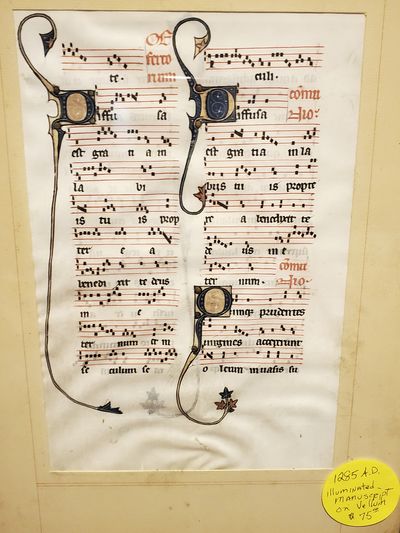 Of
ferto
te. rium
Diffu sa
est gra ti a in
la bi
is tu is prop
ter e a
benedi xit te deus
in e
ter num et in
se culum se
culi.
cōmu
Diffusa nio.
est gra tia in la
biis tu is propte
re a benedixit te
de us in e
cōmu
ter num. nio.
Quinqꝫ prudentes
uirgines acceperunt
o leum in uasis su
1285 A.D.
illuminated
manuscript
on vellum
$75